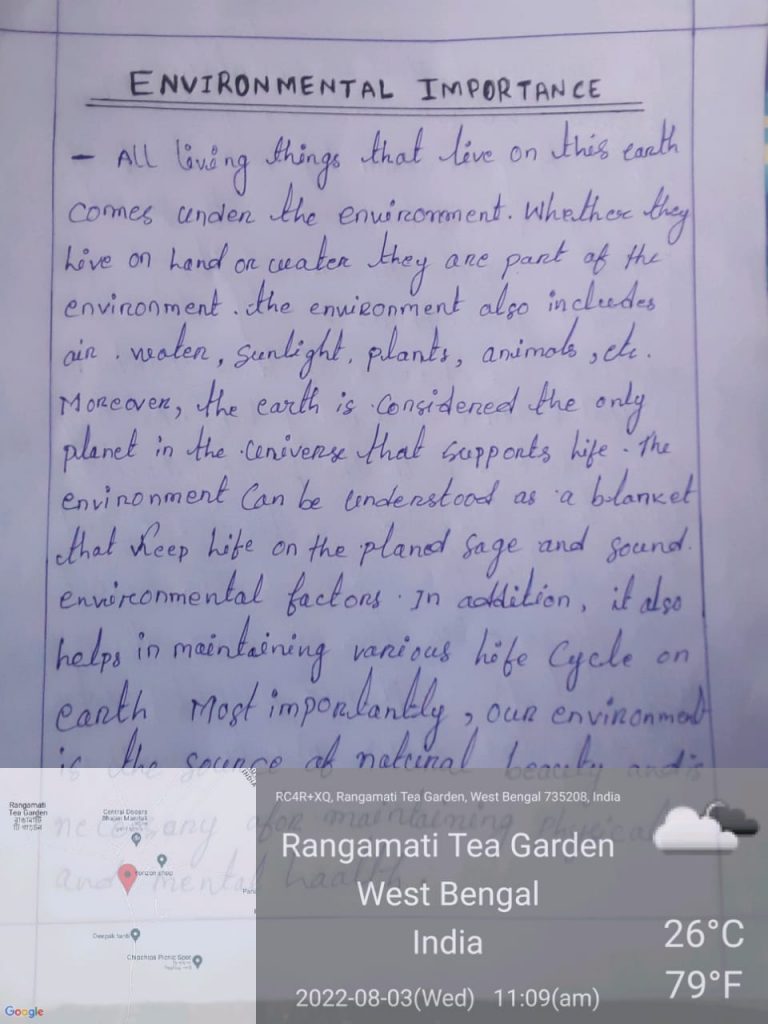 ENVIRONMENTAL IMPORTANCE
- All living things that live on this earth
comes under the environment. Whether they
live on land or water they are part of the
environment. the environment also includes
air. water, sunlight, plants, animals, etc.
Moreover, the earth is considered the only
planet in the universe that supports life. The
environment can be understood as a blanket
that keep life on the planed sage and sound.
environmental factors. In addition, it also
helps in maintaining various life cycle on
earth Most importantly, our environment
is the source of natural beauty and is
necessary afor maintaining physical
and mental haalth.
RC4R+XQ, Rangamati Tea Garden, West Bengal 735208, India
Rangamati Tea Garden
West Bengal
India
26°C
79°F
2022-08-03(Wed) 11:09(am)
Rangamati
Tea Garden
Horizon shop
Deepak tanti
Google